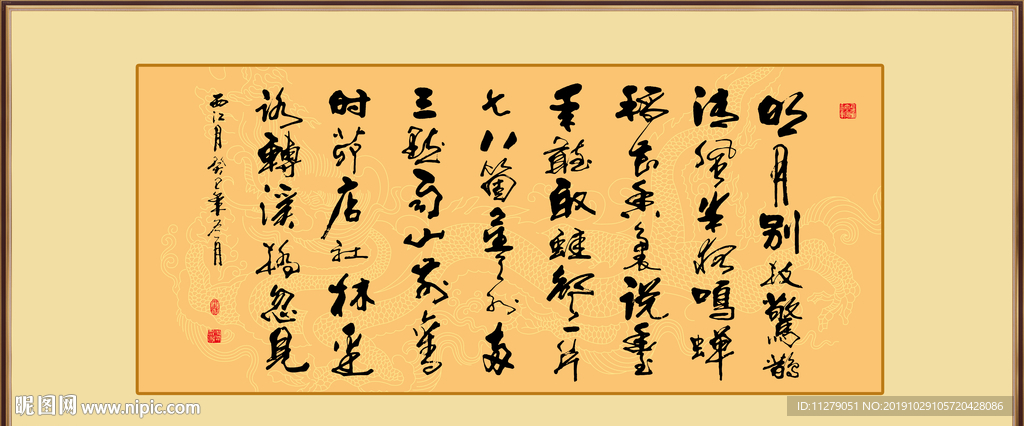 明月别枝驚鵲
清風半夜鳴蝉
稻花香裏说豐
年聽取蛙聲一片
七八箇星天外两
三點雨山前舊
时茆店社林边
路轉溪橋忽見
西江月癸巳年月
昵图网 www.nipic.com
ID:11279051 NO:20191029105720428086